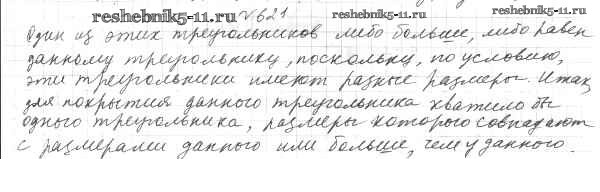 reshebnik5-11.ru №621 reshebnik5-11.ru
Один из этих треугольников либо больше, либо равен
данному треугольнику, поскольку, по условию,
эти треугольники имеют разные размеры. Итак,
для покрытия данного треугольника хватило бы
одного треугольника, размеры которого совпадают
с размерами данного или больше, чем у данного.